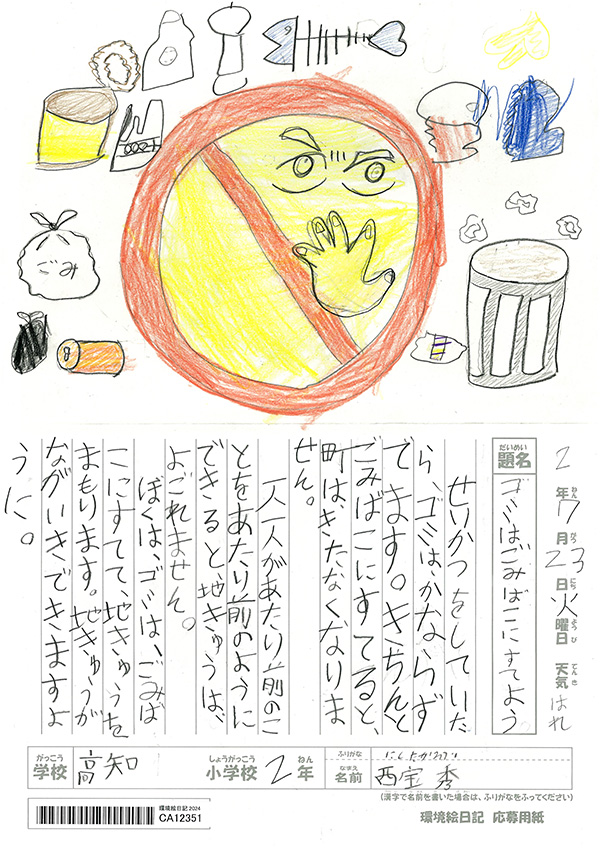 ごみ
2年7月23日火曜日 天気 はれ
ねん がつ にち よう び てん き
だいめい
題名 ゴミはごみばこにすてよう
せいかつをしていた
ら、ゴミは、かならず
でます。きちんと
ごみばこにすてると、
町は、きたなくなりま
せん。
一人一人があたり前のこ
とをあたり前のように
できると、地きゅうは、
よごれません。
ぼくは、ゴミは、ごみば
こにすてて、地きゅうを
まもります。地きゅうが
ながいきできますよ
うに。
がっこう しょうがっこう ねん ふりがな
学校 高知 小学校 2年
なまえ
名前 西宝 秀
(漢字で名前を書いた場合は、ふりがなをふってください)
環境絵日記2024
CA12351
環境絵日記 応募用紙